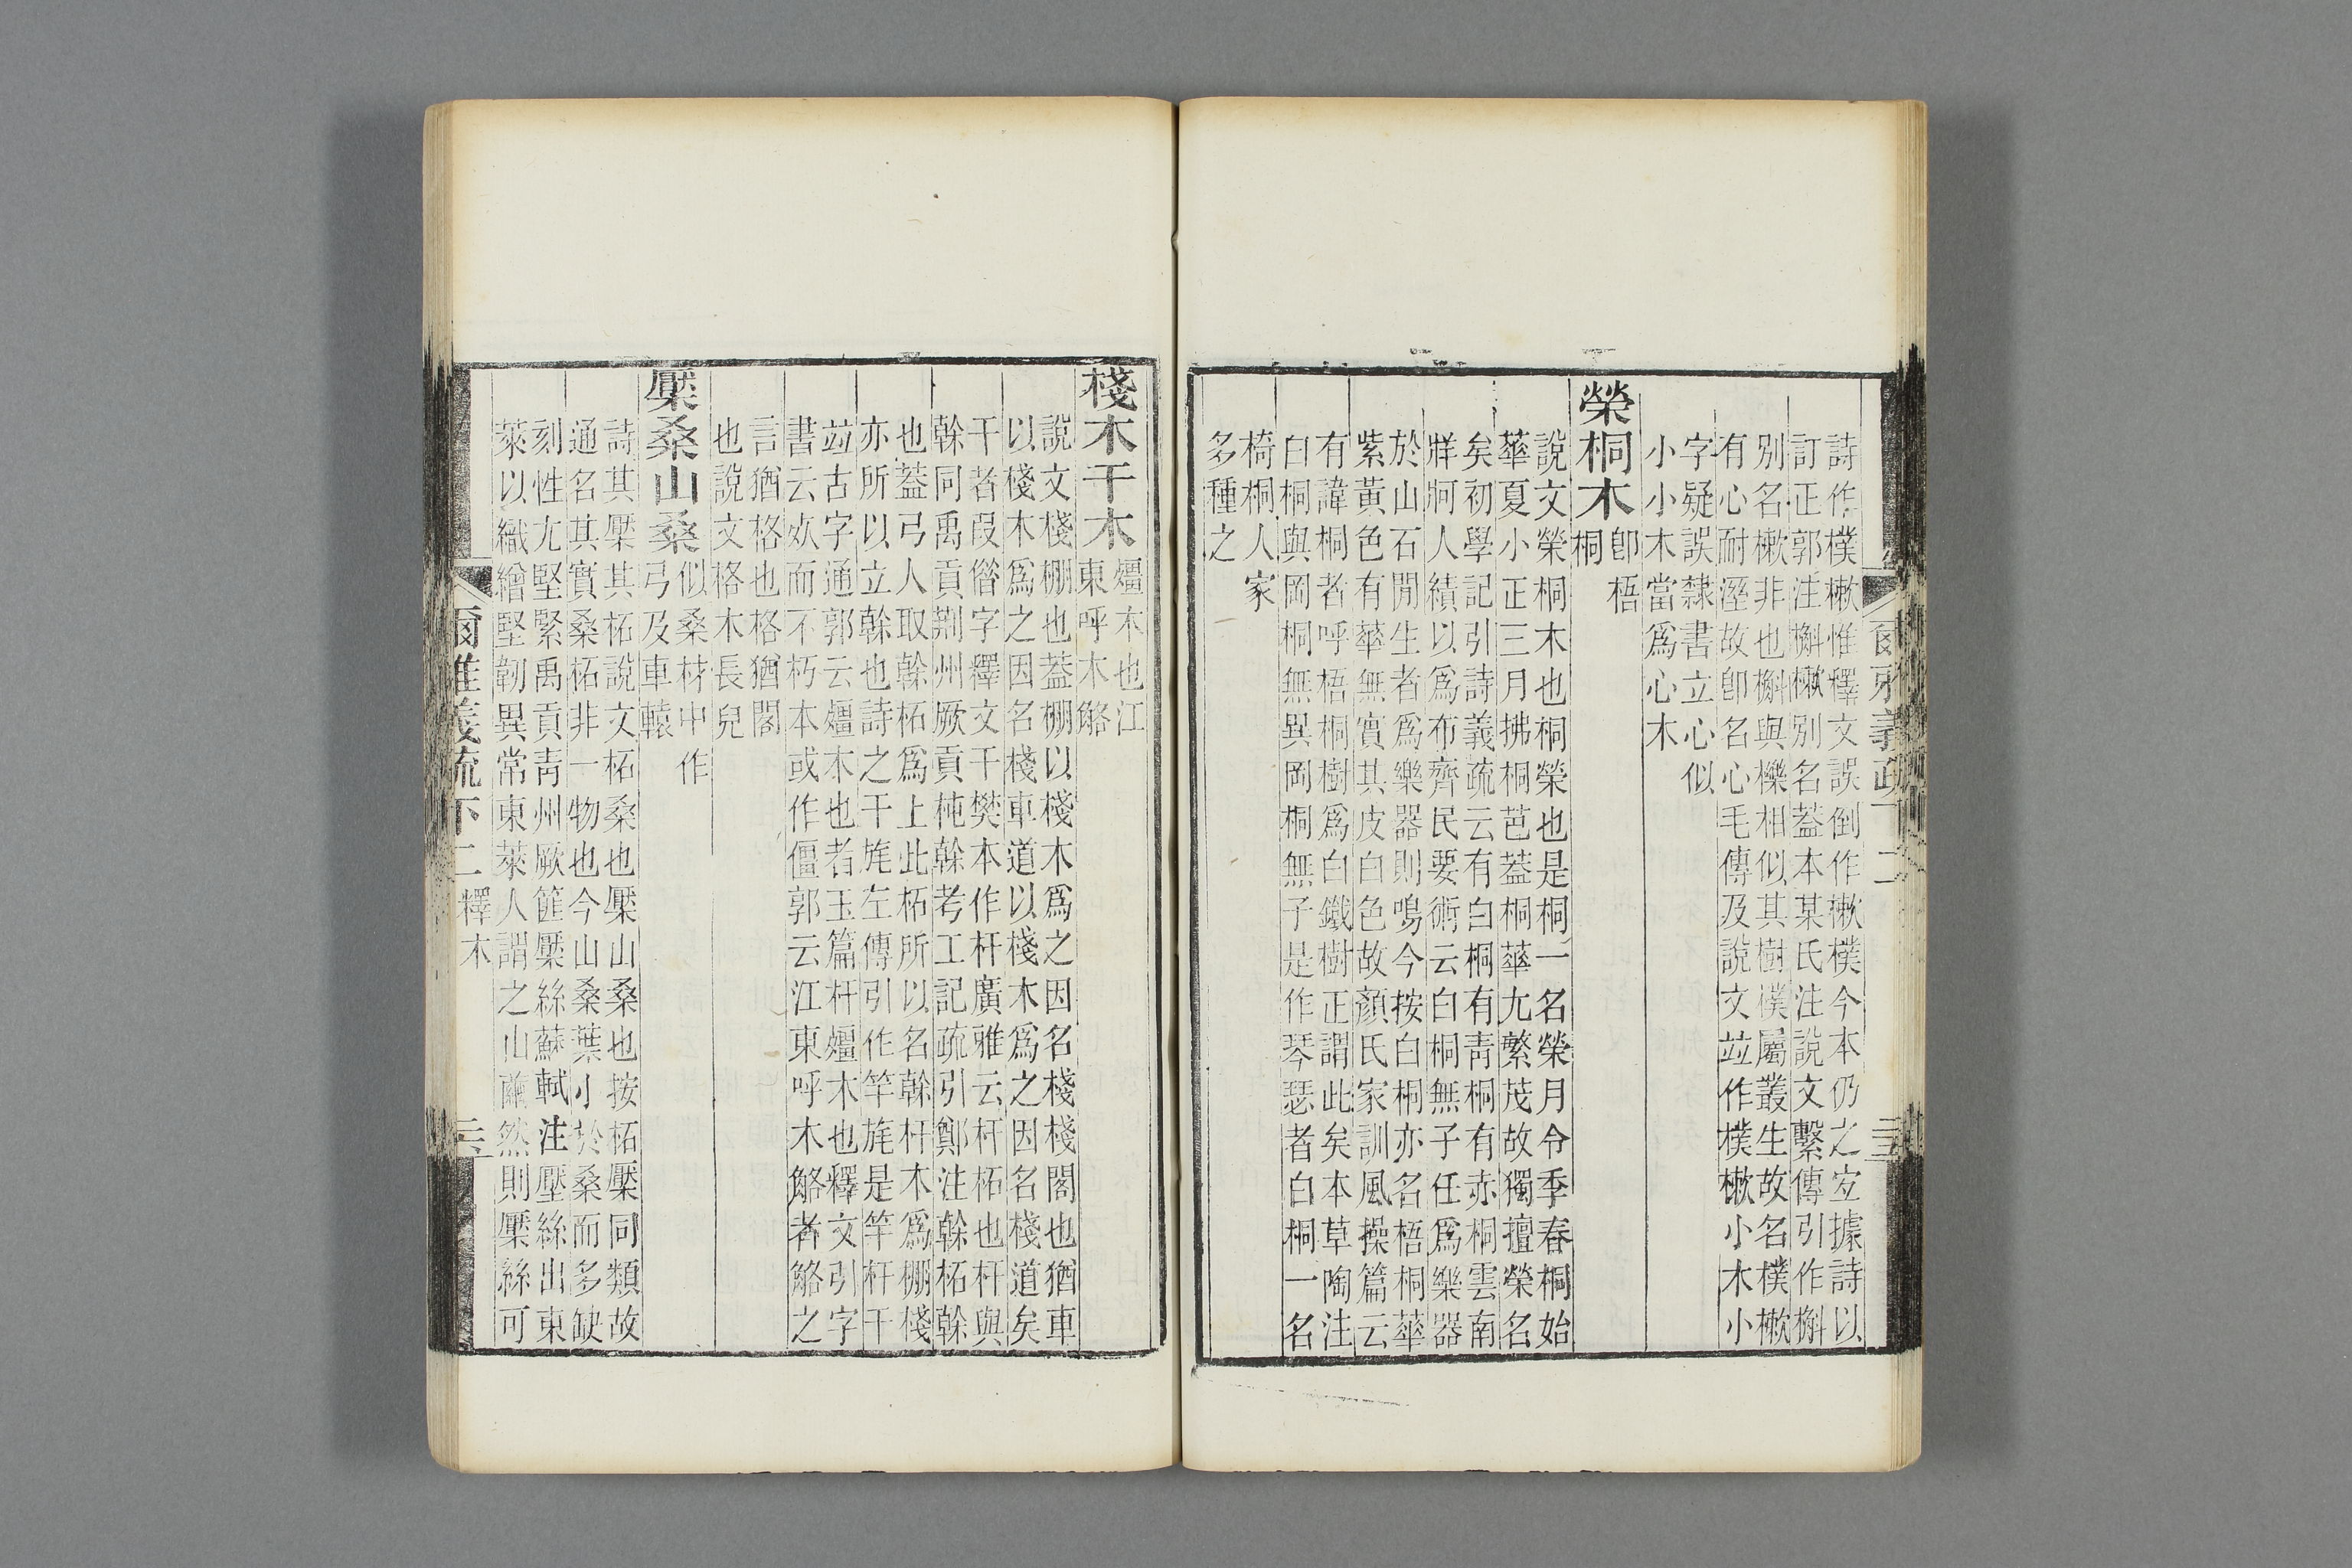 詩作樸樕惟釋文誤倒作樕樸今本仍之㝎據詩以
訂正郭注槲樕別名蓋本某氏注說文繫傳引作槲
別名樕非也槲與櫟相似其樹樸屬叢生故名樸樕
有心耐溼故卽名心毛傳及說文竝作樸樕小木小
字疑誤隸書立心似
小小木當爲心木
榮桐木卽梧
桐
說文榮桐木也桐榮也是桐一名榮月令季春桐始
華夏小正三月拂桐芭蓋桐華尤繁茂故獨擅榮名
矣初學記引詩義疏云有白桐有青桐有赤桐雲南
牂牁人績以爲布齊民要術云白桐無子任爲樂器
於山石閒生者爲樂器則鳴今按白桐亦名梧桐華
紫黃色有華無實其皮白色故顏氏家訓風操篇云
有諱桐者呼梧桐樹爲白鐵樹正謂此矣本草陶注
白桐與岡桐無異岡桐無子是作琴瑟者白桐一名
椅桐人家
多種之
爾雅義疏下二
棧木干木殭木也江
東呼木觡
說文棧棚也蓋棚以棧木爲之因名棧棧閣也猶車
以棧木爲之因名棧車道以棧木爲之因名棧道矣
干者葮偺字釋文干樊本作杆廣雅云杆柘也杆與
榦同禹貢荆州厥貢杶榦考工記疏引鄭注榦柘榦
也蓋弓人取榦柘爲上此柘所以名榦杆木爲棚棧
亦所以立榦也詩之干旄左傳引作竿旄是竿杆干
竝古字通郭云殭木也者玉篇杆殭木也釋文引字
書云㰦而不朽本或作僵郭云江東呼木觡者觡之
言猶格也格猶閣
也說文格木長皃
檿桑山桑似桑材中作
弓及車轅
詩其檿其柘說文柘桑也檿山桑也按柘檿同類故
通名其實桑柘非一物也今山桑葉小於桑而多缺
刻性尤堅緊禹貢靑州厥篚檿絲蘇軾注檿絲出東
萊以織繒堅韌異常東萊人謂之山繭然則檿絲可
爾雅義疏下二釋木